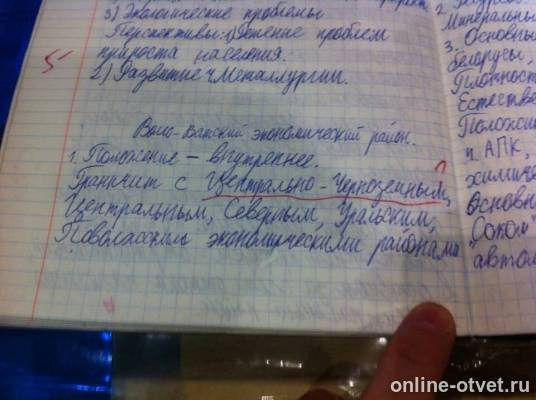 3) Экологические проблемы
Перспективы: 1) Решение проблем
прироста населения.
2) Развитие ч Металлургии.
5
Волго-Вятский экономический район.
1. Положение – внутреннее.
Граничит с Центрально-Черноземным,
Центральным, Северным, Уральским,
Поволжским экономическими районами
Минеральны
3. Основны
белорусы,
Плотност
Естестве
Положит
ч. АПК,
химиче
Основн
"Сокол"
автом
online-otvet.ru